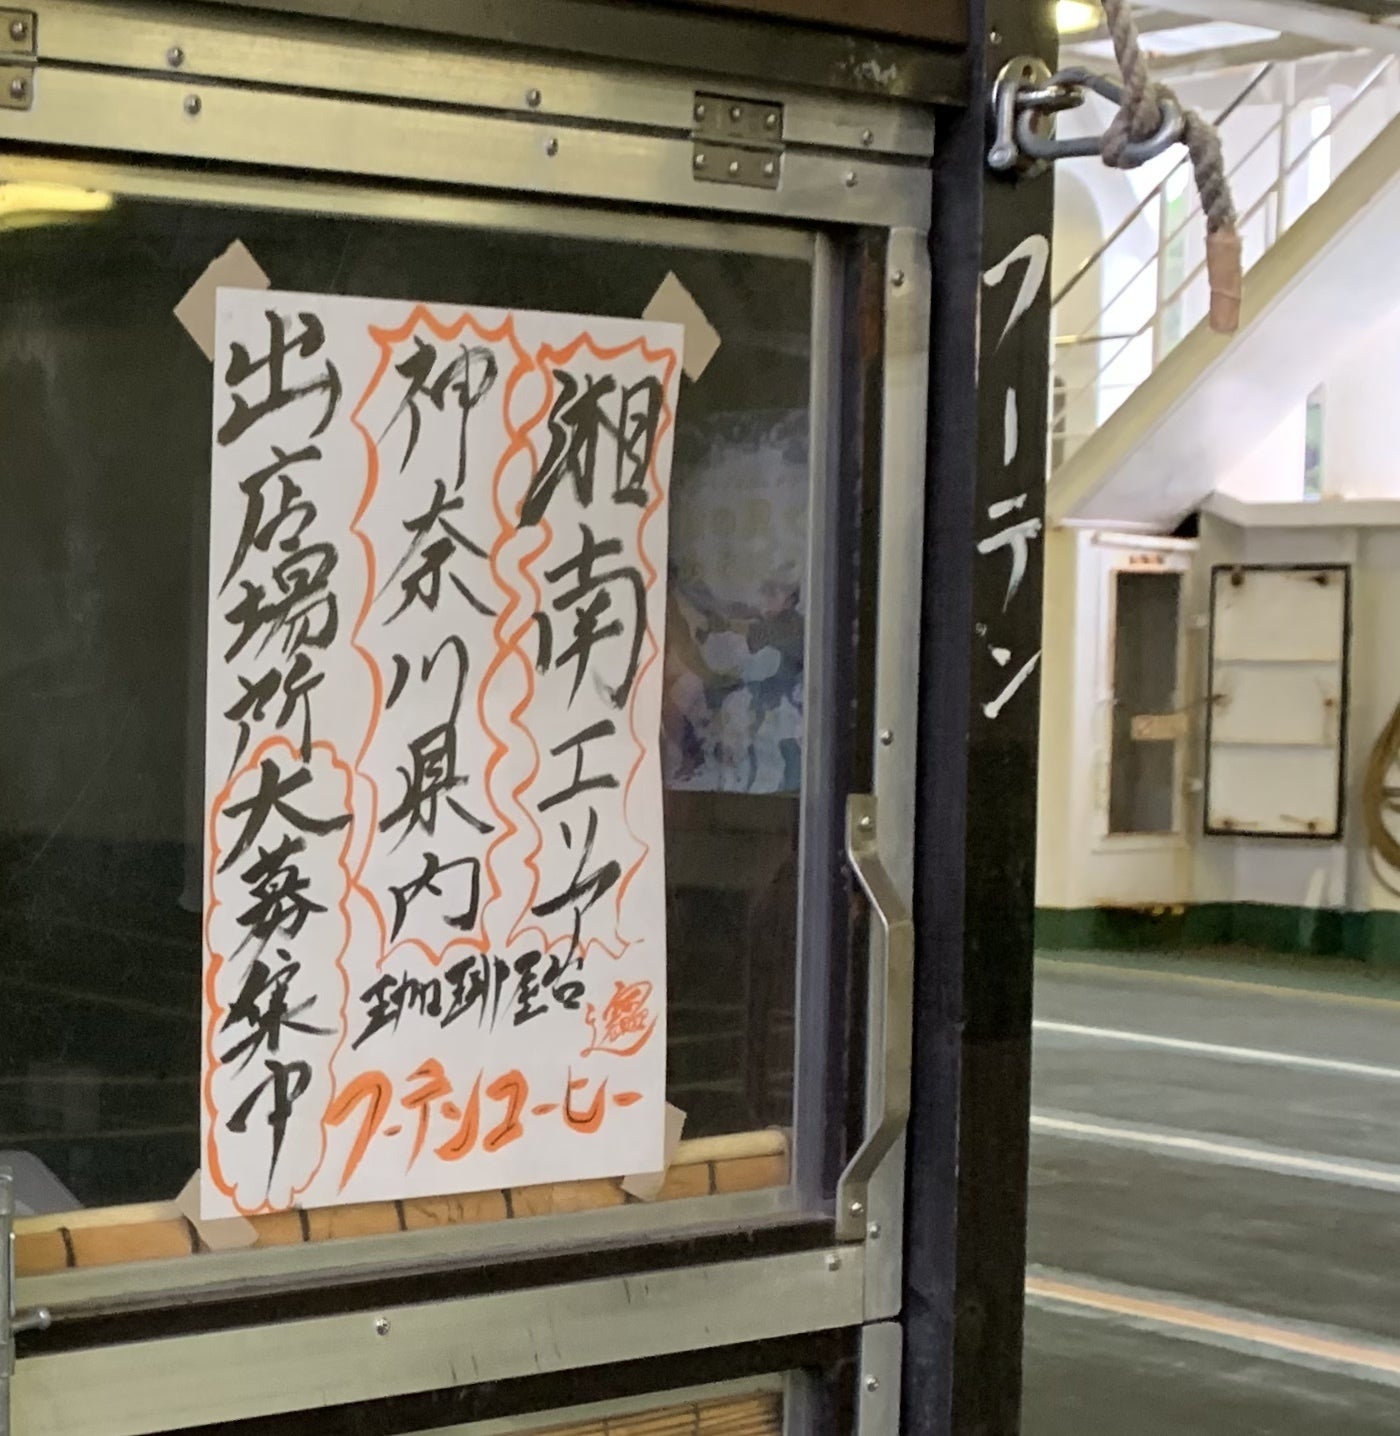 湘南エリア
神奈川県内
出店場所大募集中
珈琲屋台
フーテンコーヒー
フーテン